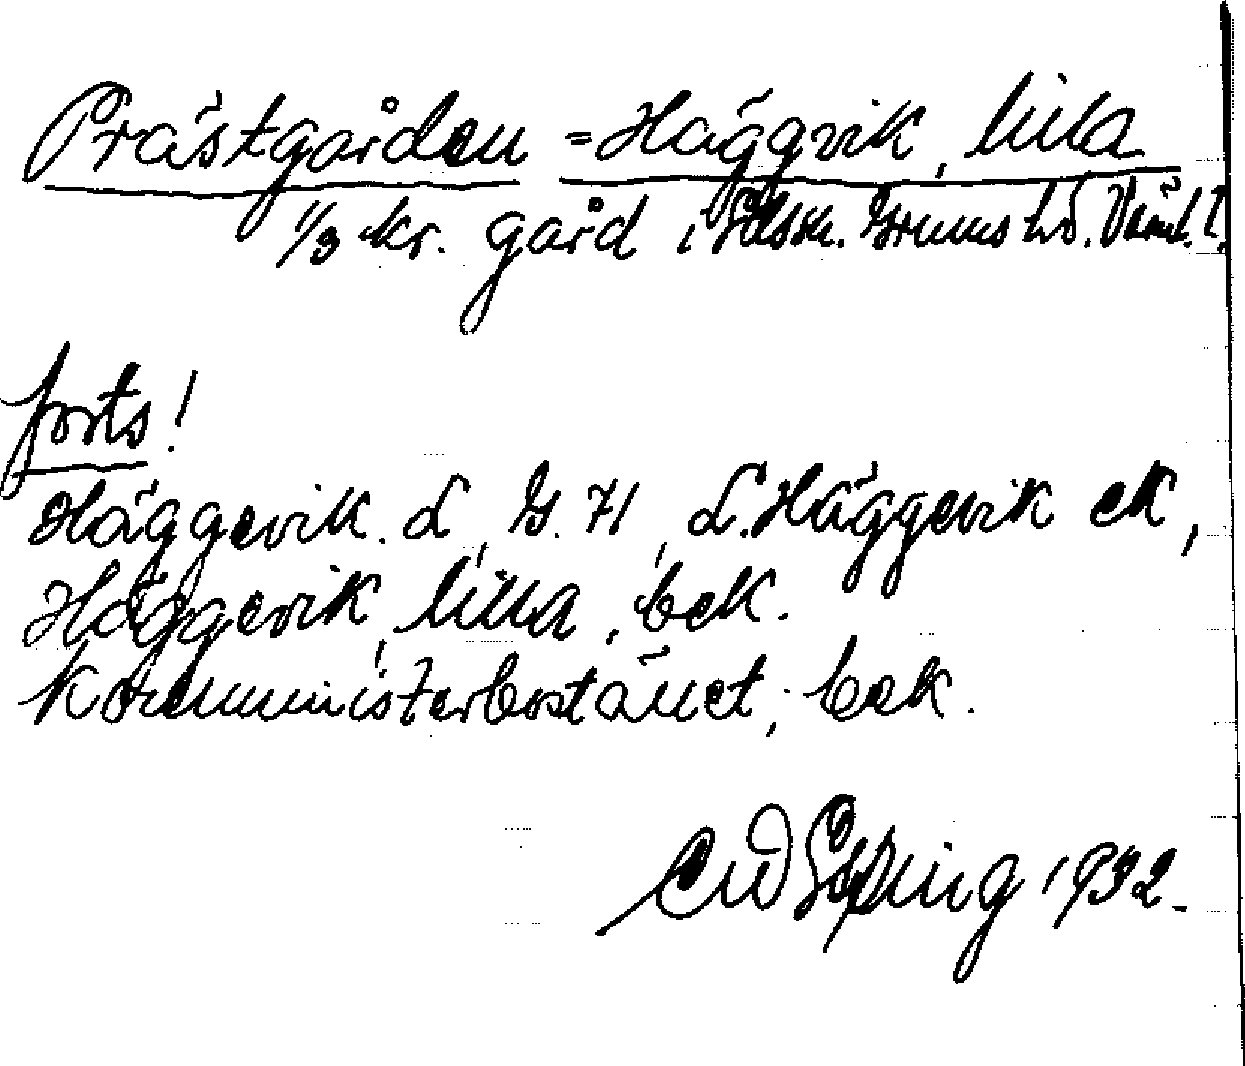 Prästgården = Häggvik, lilla
1/3 kr. gård i Ed sn. Grums hd. Värml. l.
forts!
Häggevik. L, G. H, L. Häggevik ek,
Häggevik, lilla, bek.
Komministerbostället, bek.
1932.